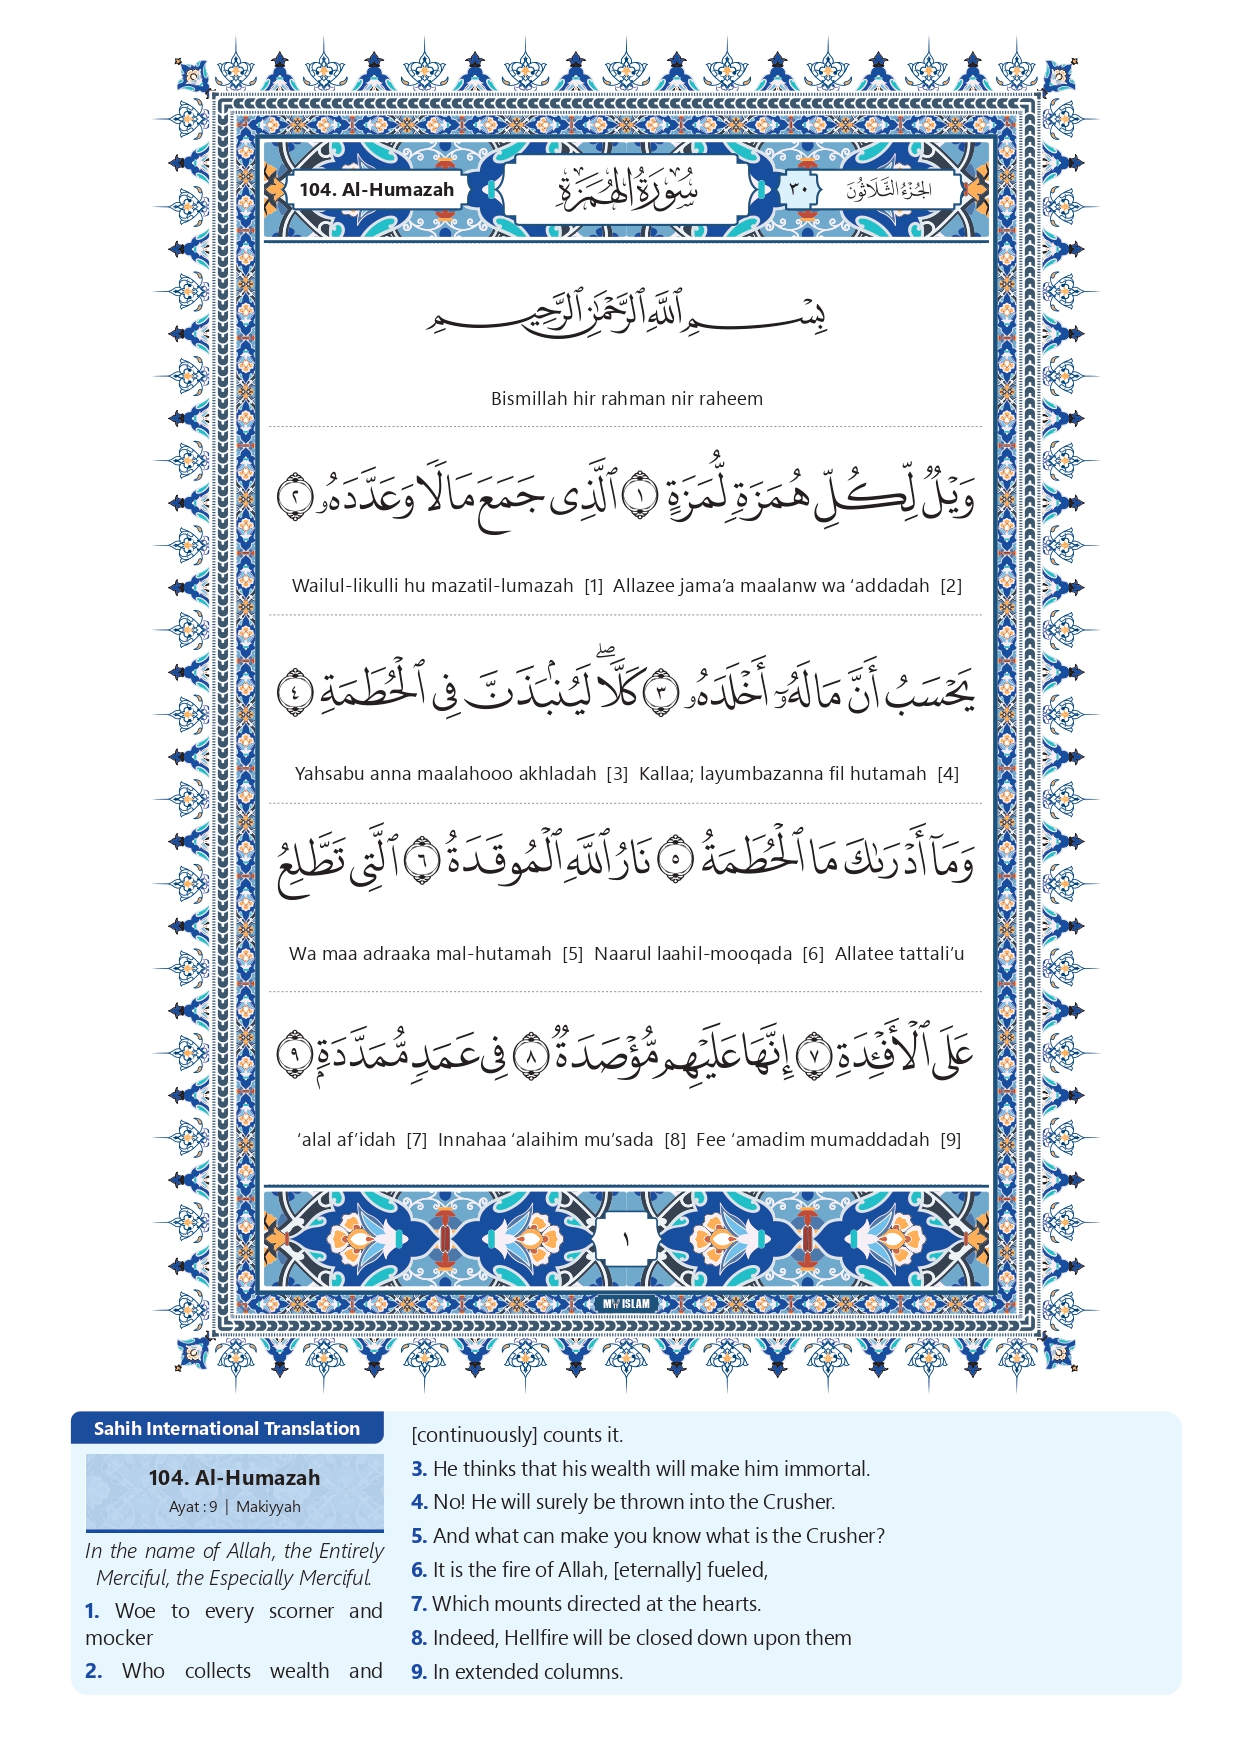 104. Al-Humazah
سُورَةُ الهُمَزَةِ
٣٠
الجُزْءُ الثَّلَاثُونَ
بِسْمِ ٱللَّهِ ٱلرَّحْمَٰنِ ٱلرَّحِيمِ
Bismillah hir rahman nir raheem
وَيْلٌ لِّكُلِّ هُمَزَةٍ لُّمَزَةٍ ١ ٱلَّذِى جَمَعَ مَالًا وَعَدَّدَهُۥ ٢
Wailul-likulli hu mazatil-lumazah [1] Allazee jama’a maalanw wa ‘addadah [2]
يَحْسَبُ أَنَّ مَالَهُۥٓ أَخْلَدَهُۥ ٣ كَلَّاۖ لَيُنۢبَذَنَّ فِى ٱلْحُطَمَةِ ٤
Yahsabu anna maalahooo akhladah [3] Kallaa; layumbazanna fil hutamah [4]
وَمَآ أَدْرَىٰكَ مَا ٱلْحُطَمَةُ ٥ نَارُ ٱللَّهِ ٱلْمُوقَدَةُ ٦ ٱلَّتِى تَطَّلِعُ
Wa maa adraaka mal-hutamah [5] Naarul laahil-mooqada [6] Allatee tattali’u
عَلَى ٱلْأَفْـِٔدَةِ ٧ إِنَّهَا عَلَيْهِم مُّؤْصَدَةٌ ٨ فِى عَمَدٍ مُّمَدَّدَةٍۭ ٩
‘alal af’idah [7] Innahaa ‘alaihim mu’sada [8] Fee ‘amadim mumaddadah [9]
١
MY ISLAM
Sahih International Translation
104. Al-Humazah
Ayat : 9 | Makiyyah
In the name of Allah, the Entirely
Merciful, the Especially Merciful.
1. Woe to every scorner and
mocker
2. Who collects wealth and
[continuously] counts it.
3. He thinks that his wealth will make him immortal.
4. No! He will surely be thrown into the Crusher.
5. And what can make you know what is the Crusher?
6. It is the fire of Allah, [eternally] fueled,
7. Which mounts directed at the hearts.
8. Indeed, Hellfire will be closed down upon them
9. In extended columns.